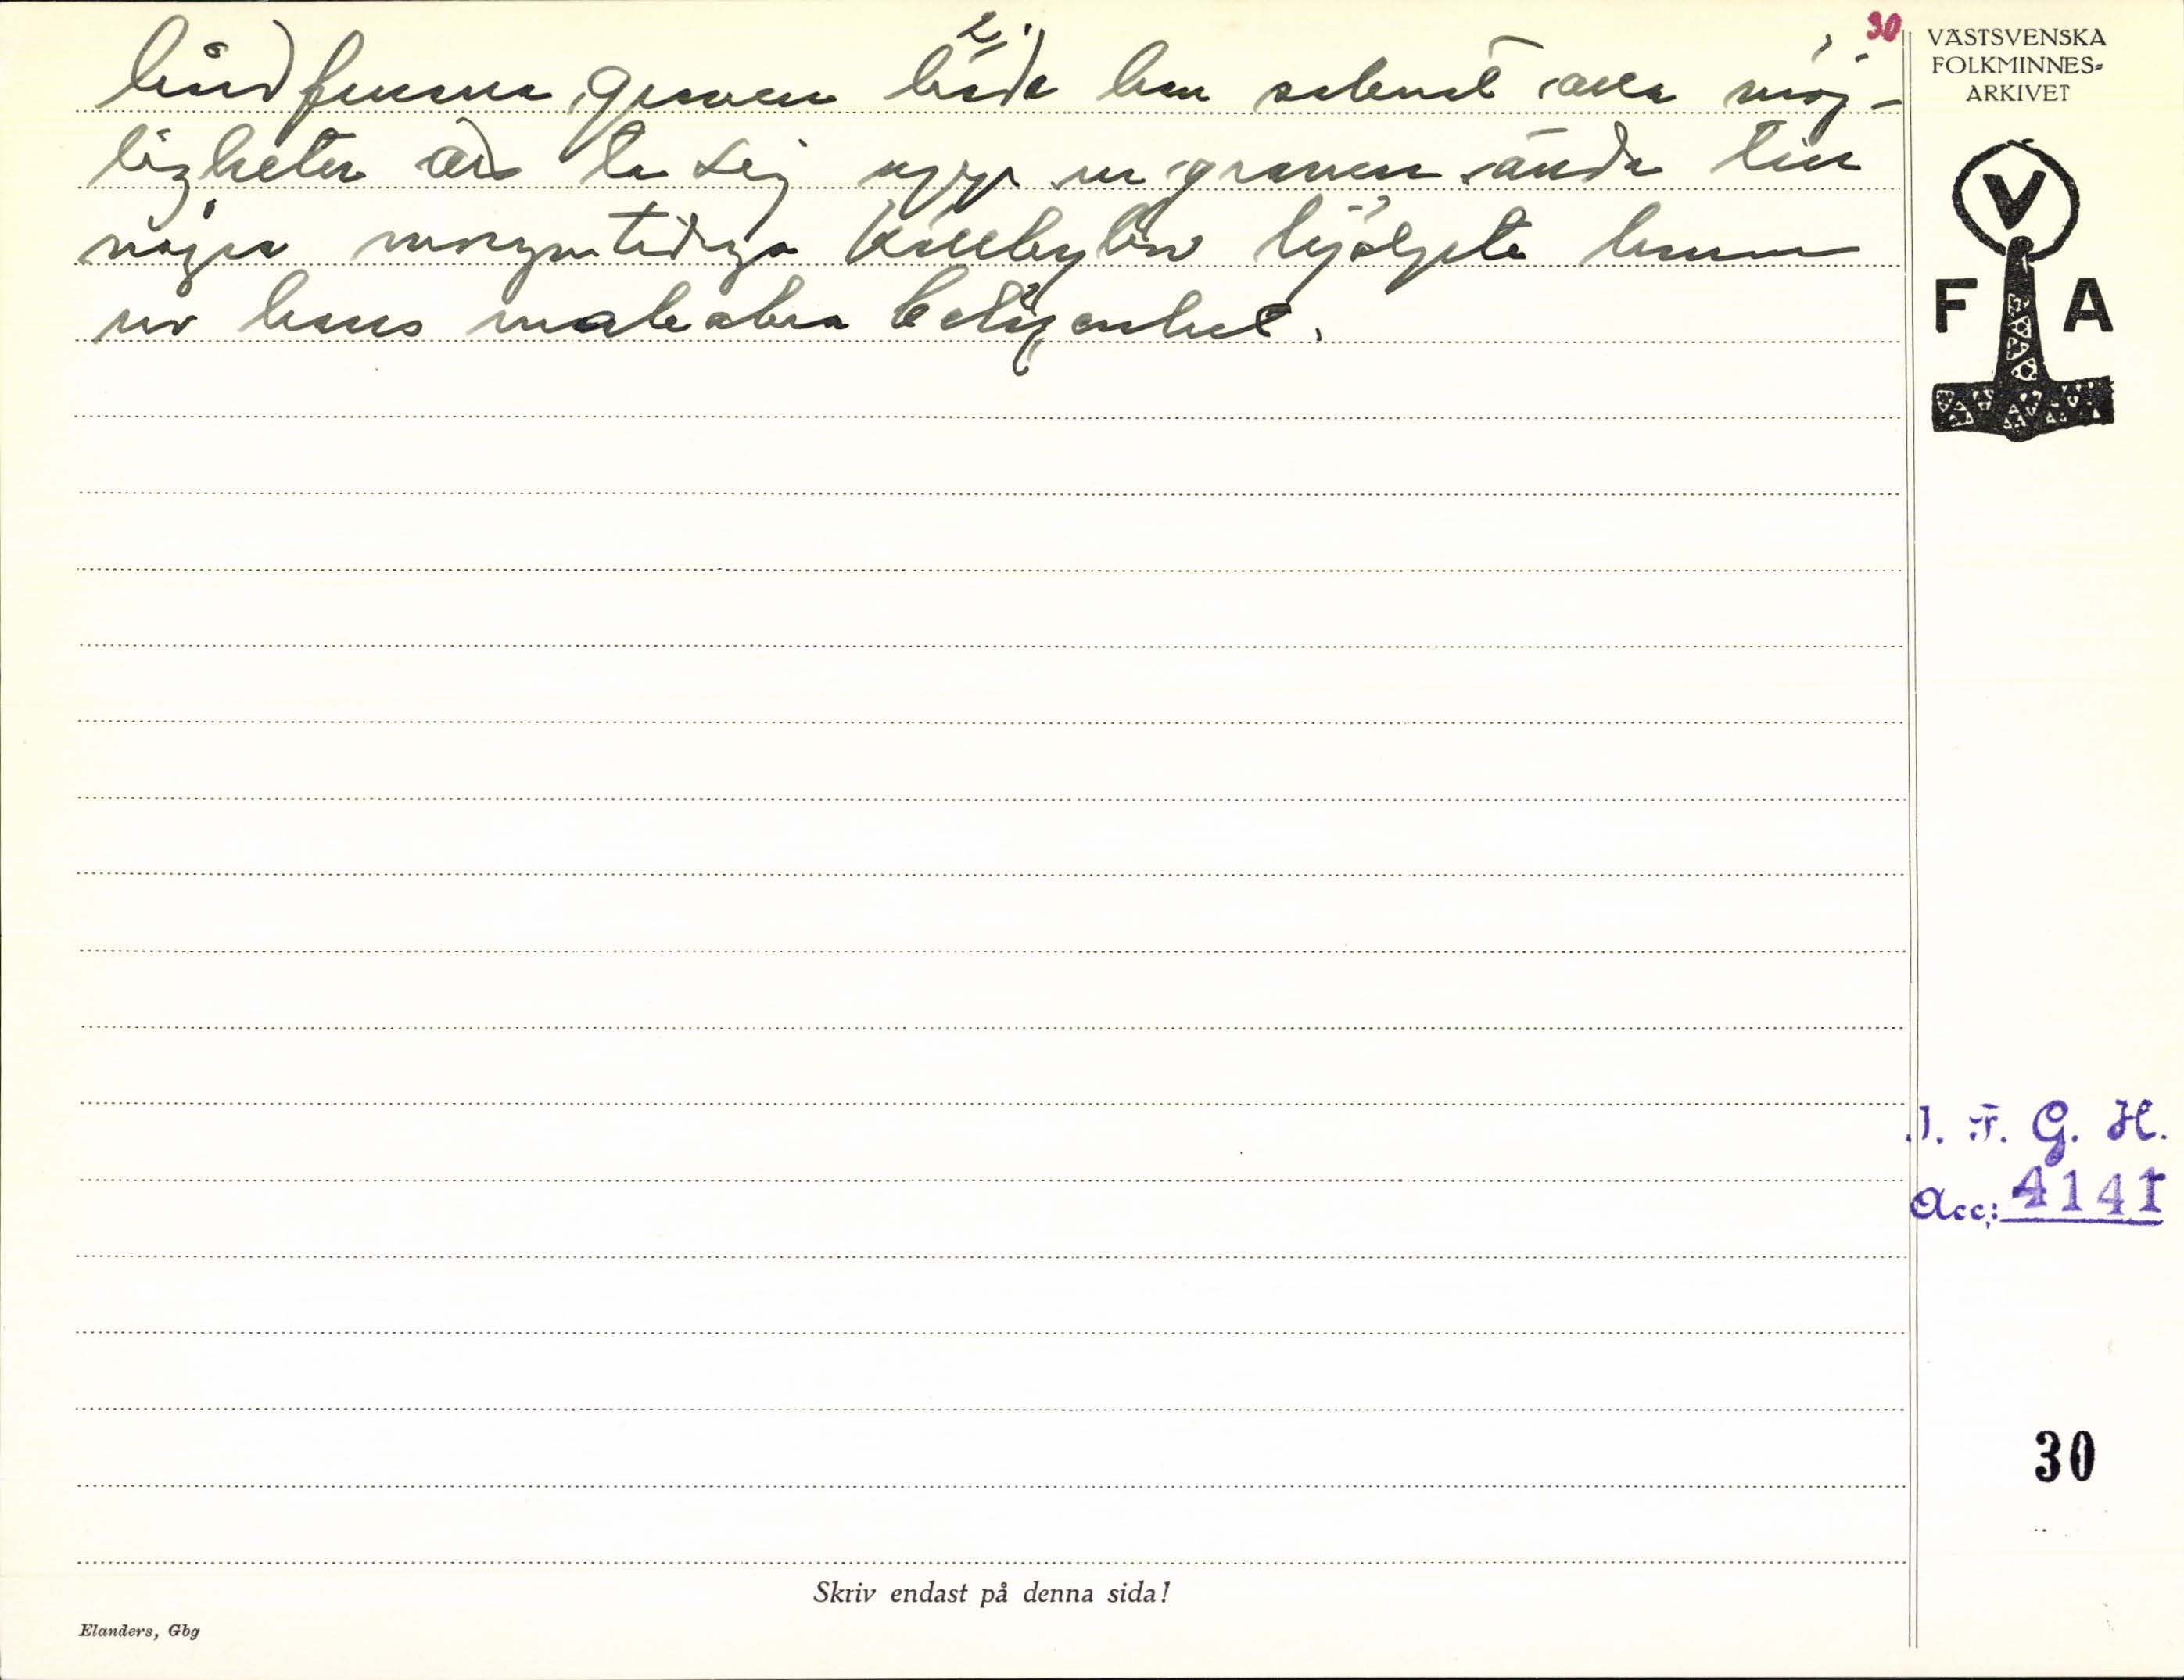 2.
30
hårdfrusna graven hade han saknat alla möj-
ligheter att ta sej upp ur graven ända till
några morgontidiga Killebybor hjälpte honom
ur hans makabra belägenhet.
VÄSTSVENSKA
FOLKMINNES-
ARKIVET
V
F A
I. F. G. H.
Acc: 4141
30
Skriv endast på denna sida!
Elanders, Gbg